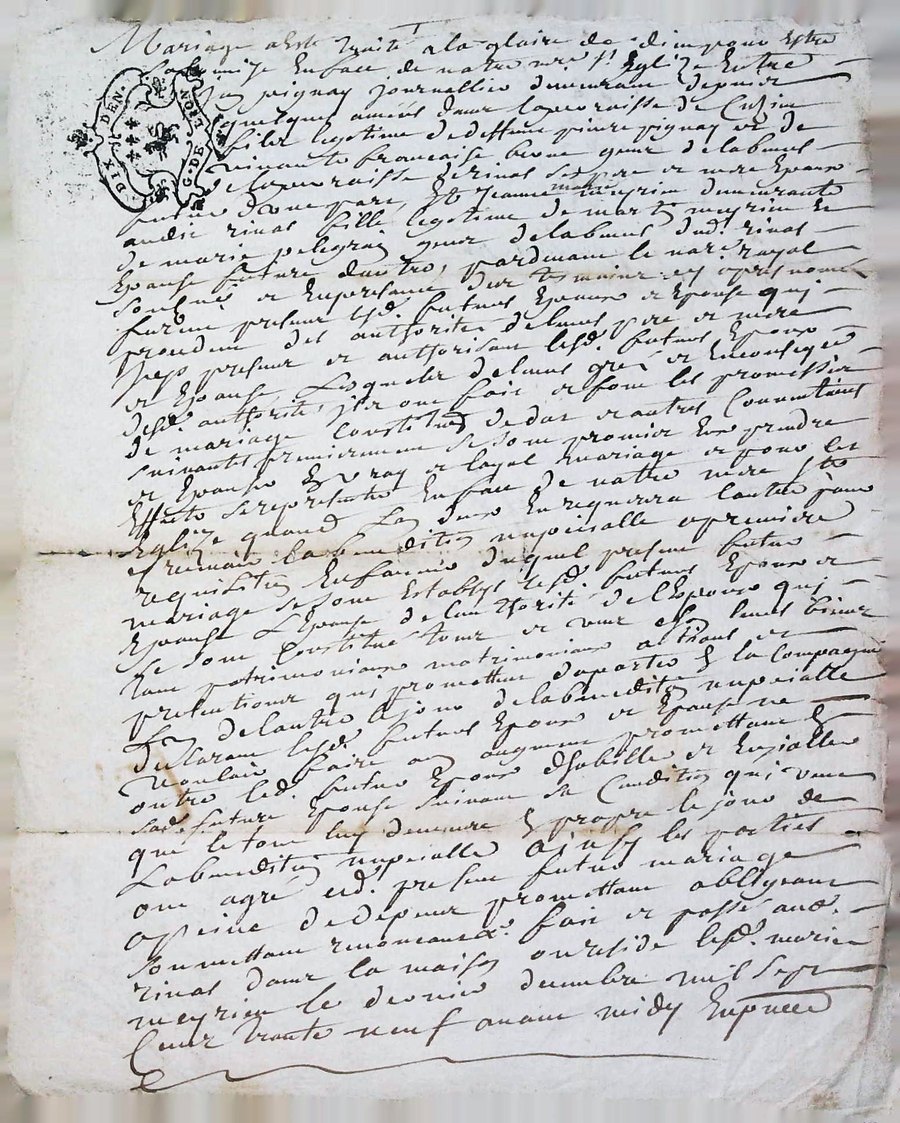 Mariage a este traité a la gloire de dieu pour estre
solemnizé En face de notre mere Ste Eglize Entre
pignay journallier demeurant depuis
quelques années dans la parroisse de
fils legitime de deffunt pierre pignay et de
vivante françoise gens de labeurs
de la parroisse de rinas ses pere et mere Epoux
futur d'une part, Et Jeanne marie meyrieu demeurante
audit rinas fille legitime de meyrieu Et
de marie gens de labeurs dud. rinas
Epouse future d'autre, pardevant le notre royal
soussigné et En presence des temoins cy apres nommés
furent presens lesd. futurs Epoux et Epouse quj
procedent des authorités de leurs pere et mere
icy presens et authorisant lesd. futurs Epoux
et Epouse, Lesquels de leurs grés et En consequence
desd. authorités, ont fait et font les promesses
de mariage Constitution de dot et autres Conventions
suivantes premierement se sont promis Eux prendre
et Epouser En vray et loyal mariage et pour les
Effects se representer En face de notre mere Ste
Eglize quand L'un d'eux En requerera L'autre pour
recevoir la benediction nuptialle a premiere
requisition En faveur duquel present futur
mariage se sont Establys lesd. futurs Epoux et
Epouse L'Epouse de l'authorité de l'Epoux quj
se sont Constitué tous et uns leurs biens
tant patrimoniaux matrimoniaux actions et
pretentions quj promettent d'aporter En la Compagnie
L'un de l'autre le jour de la benediction nuptialle
declarant lesd. futurs Epoux et Epouse ne
vouloir faire aucun augment promettant En
outre led. futur Epoux d'habiller et Enjoialler
sad. future Epouse suivant sa Condition quj veut
que le tout luy demeure En propre le jour de
La benediction nuptialle ainsy les parties
ont agréé led. present futur mariage
a peine de depens promettant obligeant
soumettant renonceant &a. fait et passé aud.
rinas dans la maison ou reside lesd. mariés
meyrieu le dernier decembre mil sept
Cent trente neuf avant midy En presence
DIX DEN.
G. DE LION